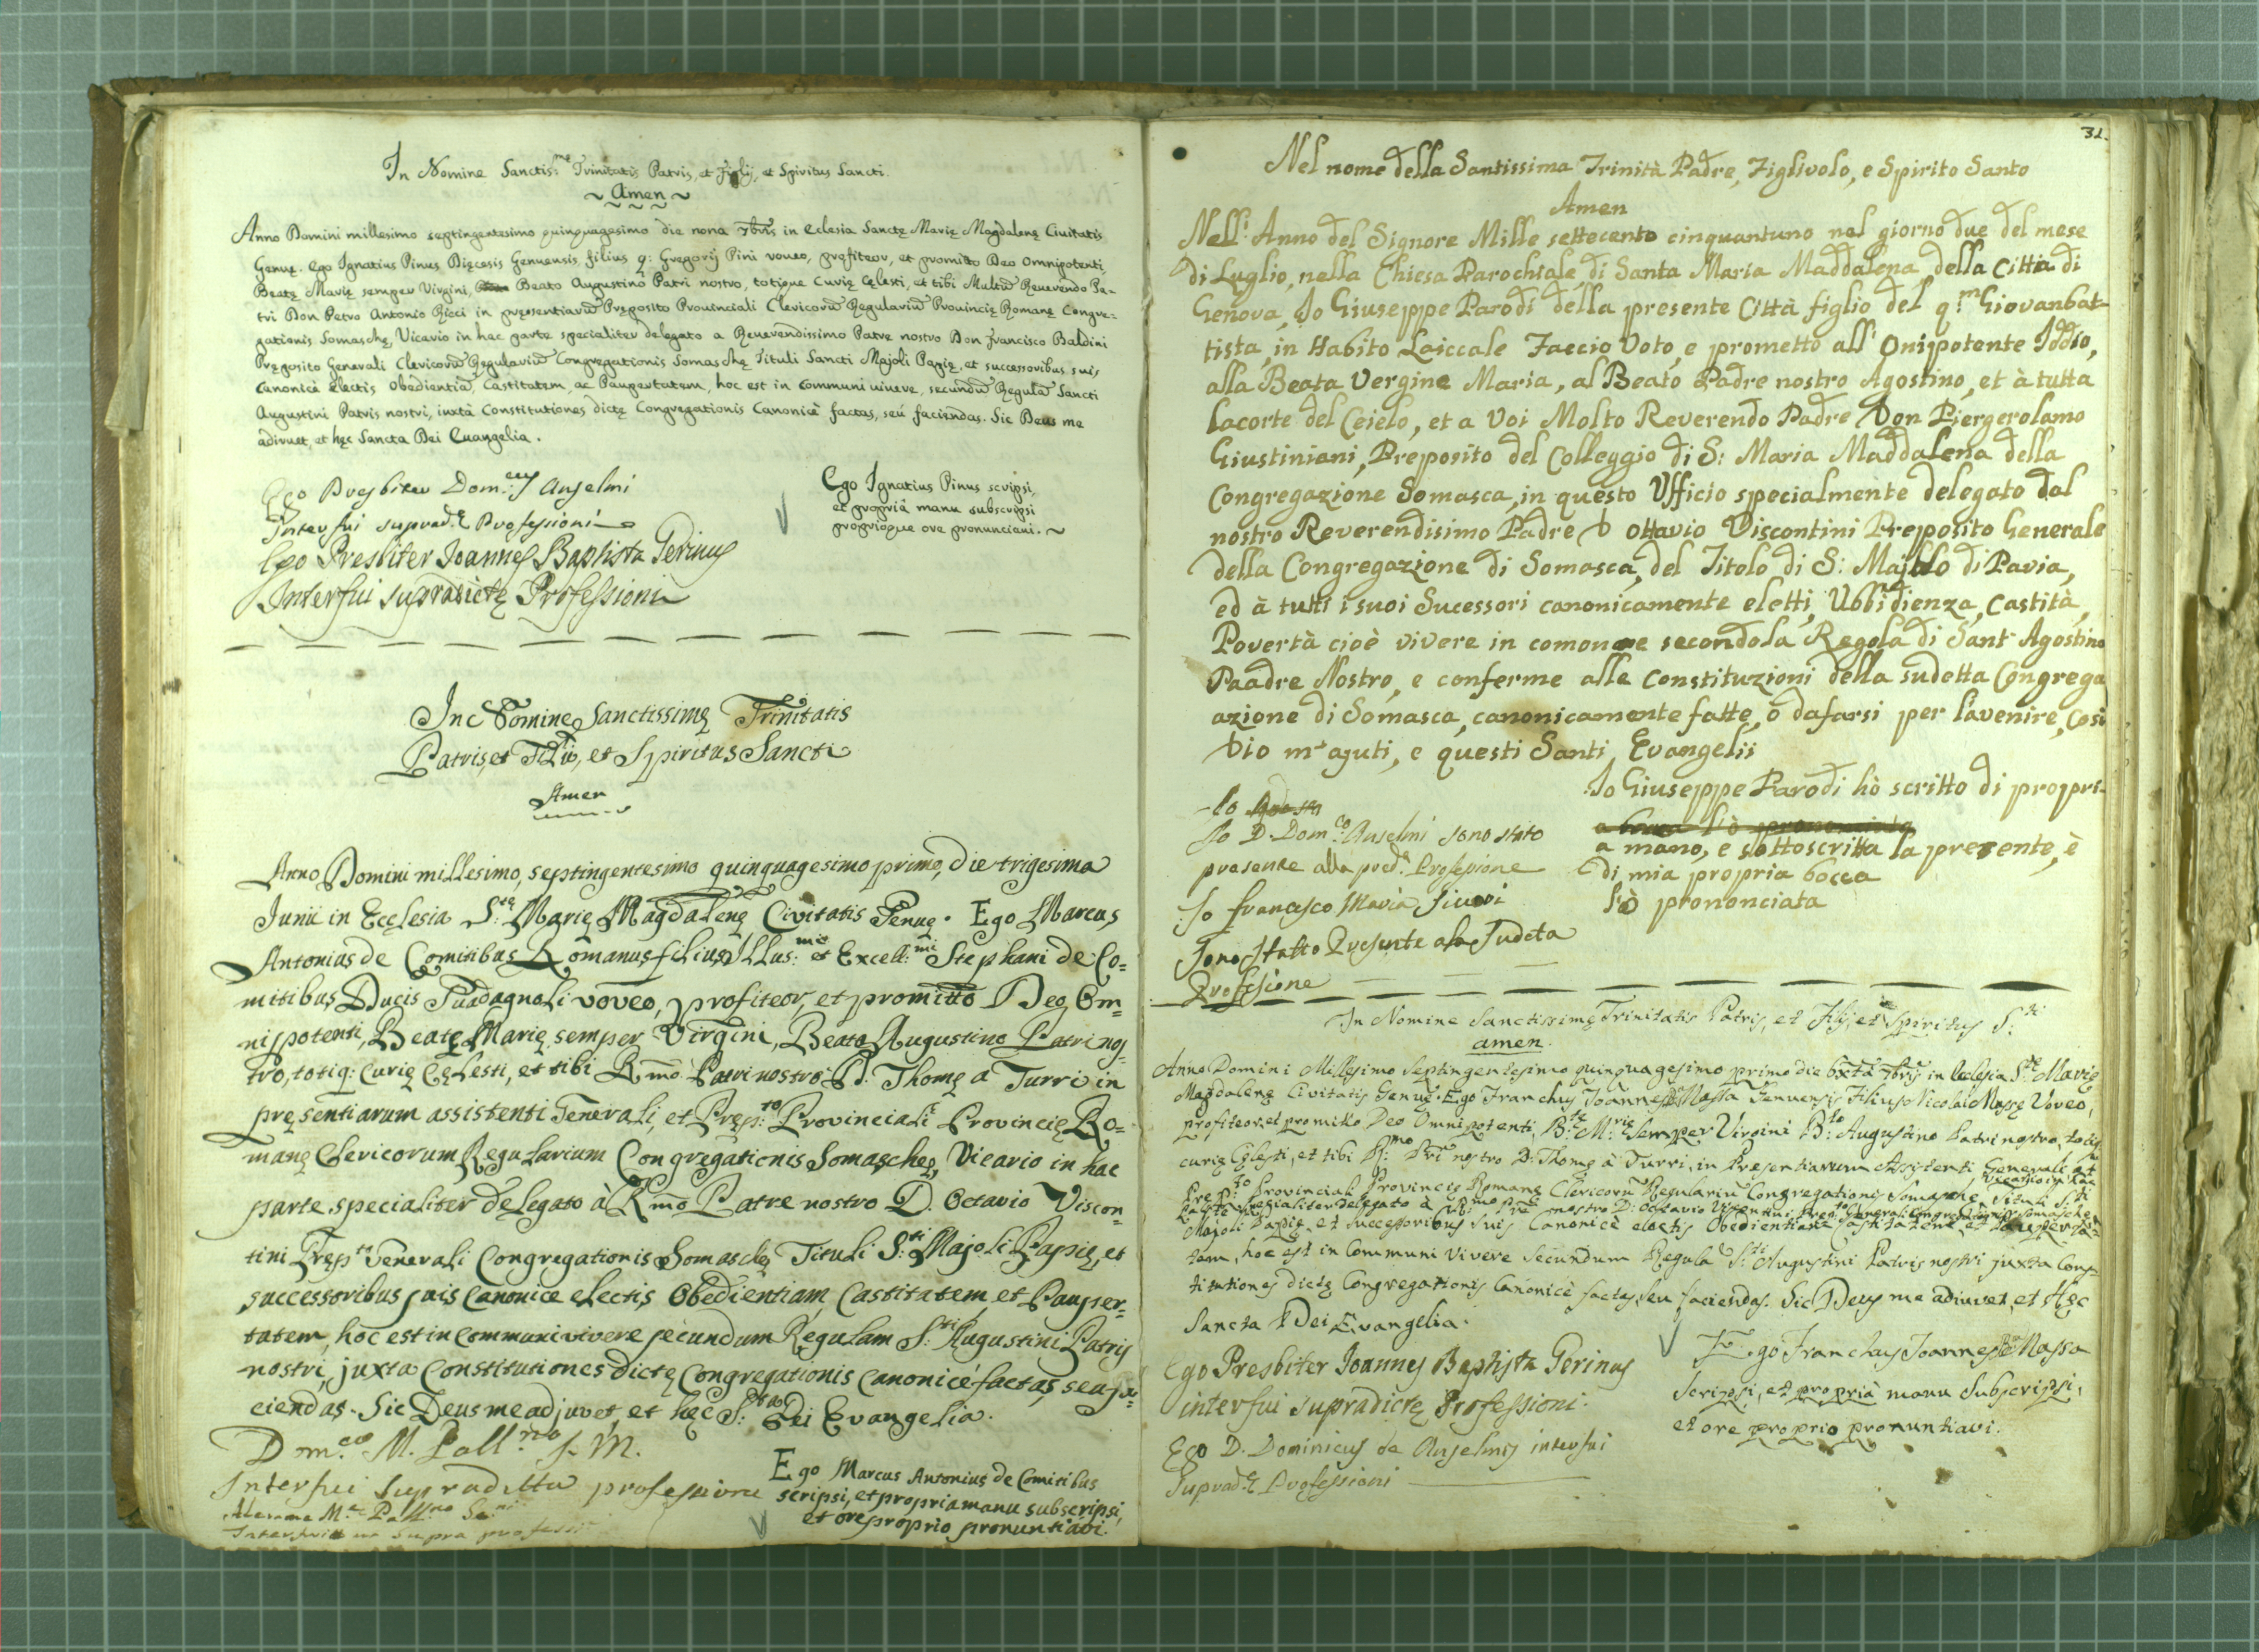 In Nomine Sanctis:mę Trinitatis Patris, et Filij, et Spiritus Sancti.
~ Amen ~
Anno Domini millesimo septingentesimo quinquagesimo die nona 7bris in eclesia Sanctę Marię Magdalenę Civitatis
Genuę. Ego Ignatius Pinus Dięcesis Genuensis filius q: Gregorij Pini voveo, profiteor, et promitto Deo Omnipotenti,
Beatę Marię semper Virgini, Beato Augustino Patri nostro, totique Curię Cęlesti, et tibi Multum Reverendo Pa-
tri Don Petro Antonio Ricci in pręsentiarum Pręposito Provinciali Clericorum Regularium Provincię Romanę Congre-
gationis Somaschę, Vicario in hac parte specialiter delegato a Reverendissimo Patre nostro Don Francisco Baldini
Pręposito Generali Clericorum Regularium Congregationis Somaschę Tituli Sancti Majoli Papię, et successoribus suis
canonicè electis Obedientiam, Castitatem, ac Paupertatem, hoc est in communi vivere, secundum Regulam Sancti
Augustini Patris nostri, iuxtà Constitutiones dictę Congregationis Canonicè factas, seù faciendas. Sic Deus me
adiuvet, et hęc Sancta Dei Evangelia.
Ego Presbiter Dom:cus Anselmi
Interfui suprad:ę Professioni
Ego Presbiter Joannes Baptista Gerinus
Interfui supradictę Professioni
Ego Ignatius Pinus scripsi,
et propriâ manu subscripsi
proprioque ore pronunciavi. ~
In Nomine Sanctissimę Trinitatis
Patris, et Filii, et Spiritus Sancti
Amen
Anno Domini millesimo, septingentesimo quinquagesimo primo, die trigesima
Junii in Ecclesia S:tę Marię Magdalenę Civitatis Genuę. Ego Marcus
Antonius de Comitibus Romanus filius Illus:mi et Excell:mi Stephani de Co=
mitibus Ducis Guadagnoli voveo, profiteor, et promitto Deo Om=
nipotenti, Beatę Marię semper Virgini, Beato Augustino Patri nos=
tro, totiq: Curię Cęlesti, et tibi Rmo Patri nostro D. Thomę a Turri in
pręsentiarum assistenti Generali, et Pręp:to Provinciali Provincię Ro=
manę Clericorum Regularium Congregationis Somaschę, Vicario in hac
parte specialiter delegato à Rmo Patre nostro D. Octavio Viscon=
tini Pręp:to Generali Congregationis Somaschę Tituli S:ti Majoli Papię, et
successoribus suis canonice electis Obedientiam, Castitatem, et Pauper=
tatem, hoc est in communi vivere secundum Regulam S:ti Augustini Patris
nostri, juxta Constitutiones dictę Congregationis canonicè factas, seu fa=
ciendas. Sic Deus me adjuvet, et hęc S:ta Dei Evangelia.
Dom:co M. Pall:no
Interfui supradictta professione
Ego Marcus Antonius de Comitibus
scripsi, et propria manu subscripsi,
et ore proprio pronuntiavi.
31.
Nel nome della Santissima Trinità Padre, Figlivolo, e Spirito Santo
Amen
Nell: Anno del Signore Mille settecento cinquantuno nel giorno due del mese
di Luglio, nella Chiesa Parochiale, di Santa Maria Maddalena della Città di
Genova, Io Giuseppe Parodi della presente Città figlio del q:m Giovanbat-
tista, in Habito Laiccale Faccio Voto, e prometto all' Onipotente Iddio,
alla Beata Vergine Maria, al Beato Padre nostro Agostino, et à tutta
lacorte del Ceielo, et a Voi Molto Reverendo Padre Don Piergerolamo
Giustiniani, Preposito del Colleggio di S: Maria Maddalena della
Congregazione Somasca, in questo Ufficio specialmente delegato dal
nostro Reverendisimo Padre D Ottavio Viscontini Preposito Generale
della Congregazione di Somasca, del Titolo di S: Majolo di Pavia,
ed à tutti i suoi Sucessori canonicamente eletti, Ubbidienza, Castità,
Povertà cioè vivere in comone secondola Regola di Sant' Agostino
Paadre Nostro, e conferme alle Constituzioni della sudetta Congrega
azione di Somasca, canonicamente fatte, ò dafarsi per l'avenire, Così
Dio m' ajuti, e questi Santi Evangelii
Io
Io D. Dom:co Anselmi sono stato
presente alla pred:a Profesione
Io Francesco Maria
Sono Statto Presente ala Sudeta
Profesione
Io Giuseppe Parodi hò scritto di propri-
a mano, e sottoscritta la presente, è
di mia propria bocca
l'ò prononciata
In Nomine Sanctissimę Trinitatis Patris, et Filij, et Spiritus S:ti
amen.
Anno Domini Millesimo Septingentesimo quinquagesimo primo die sexta 7bris in Eclesia S:tę Marię
Magdalenę Civitatis Genuę. Ego Franchus Joannes Massa Genuensis Filius Nicolai Massę Voveo,
profiteor, et promitto Deo Omnipotenti, B:tę M:rię semper Virgini B:to Augustino Patri nostro, totiq:
curię Cęlesti, et tibi R:mo Pri nostro D. Thomę à Turri, in Presentiarum Assistenti Generali et
Prep:to Provinciali Provincię Romanę Clericorum Regularium Congregationis Somaschę Vicario in hac
parte specialiter delegato à R:mo Pre nostro D: Octavio Viscontini, Prep:to Generali Congregationis Somaschę Tituli S:ti
Majoli Papię, et successoribus suis Canonicè electis Obedientiam Castitatem et Pauperta-
tem, hoc est in Communi Vivere secundum Regulam S:ti Augustini Patris nostri juxta Cons-
titutiones dictę Congregationis Canonicè factas, seu faciendas. Sic Deus me adiuvet, et Hęc
Sancta Dei Evangelia.
Ego Presbiter Joannes Baptista Gerinus
interfui supradictę Professioni.
Ego D. Dominicus de Anselmis interfui
suprad:ę Professioni
Ego Franchus Joannes Massa
Scripsi, et propriâ manu Subscripsi,
et ore proprio pronuntiavi.